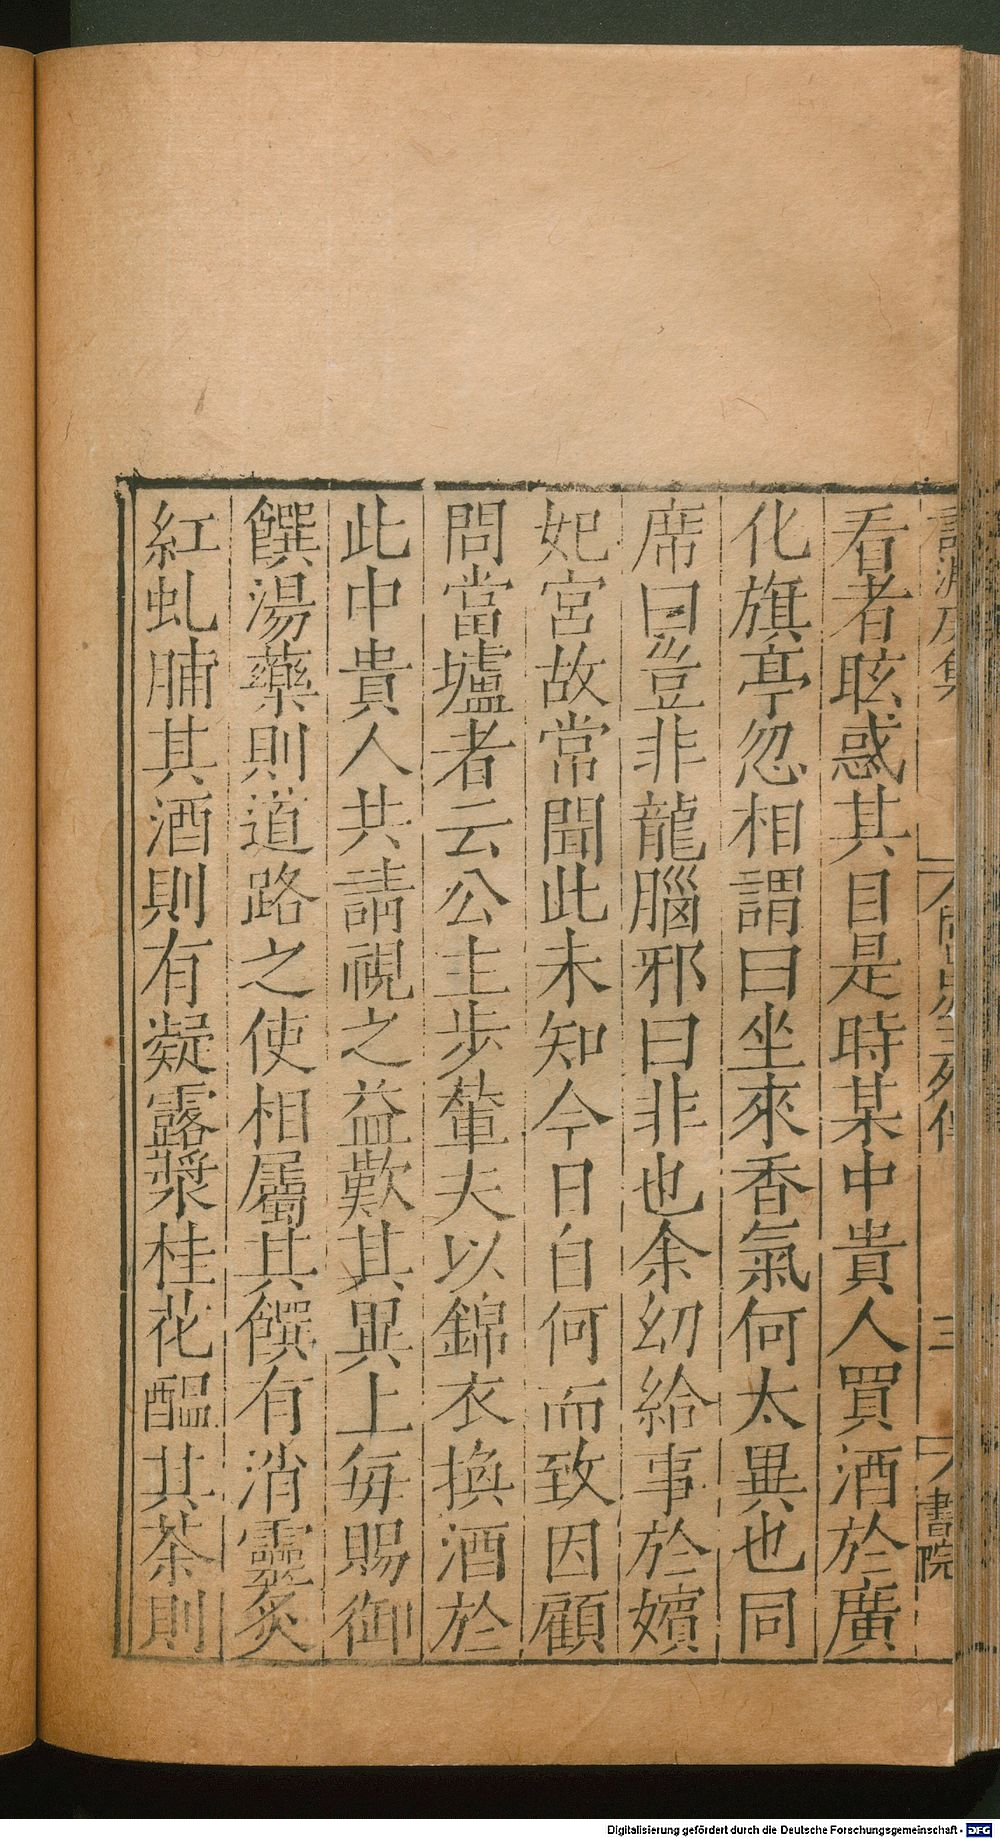 看者眩惑其目是時某中貴人買酒於廣
化旗亭忽相謂曰坐來香氣何太異也同
席曰豈非龍腦邪曰非也余幼給事於嬪
妃宮故常聞此未知今日自何而致因顧
問當壚者云公主步輦夫以錦衣換酒於
此中貴人共請視之益歎其異上每賜御
饌湯藥則道路之使相屬其饌有消靈炙
紅虬脯其酒則有凝露漿桂花醖其茶則
三
書院
Digitalisierung gefördert durch die Deutsche Forschungsgemeinschaft - DFG